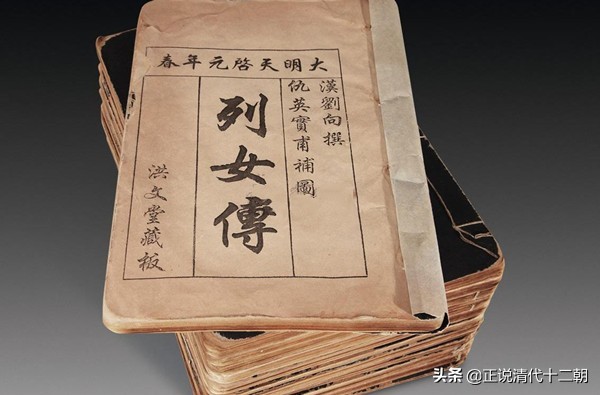 大明天啓元年春
漢劉向撰
仇英實甫補圖
列女傳
洪文堂藏板
头条 @正说清代十二朝